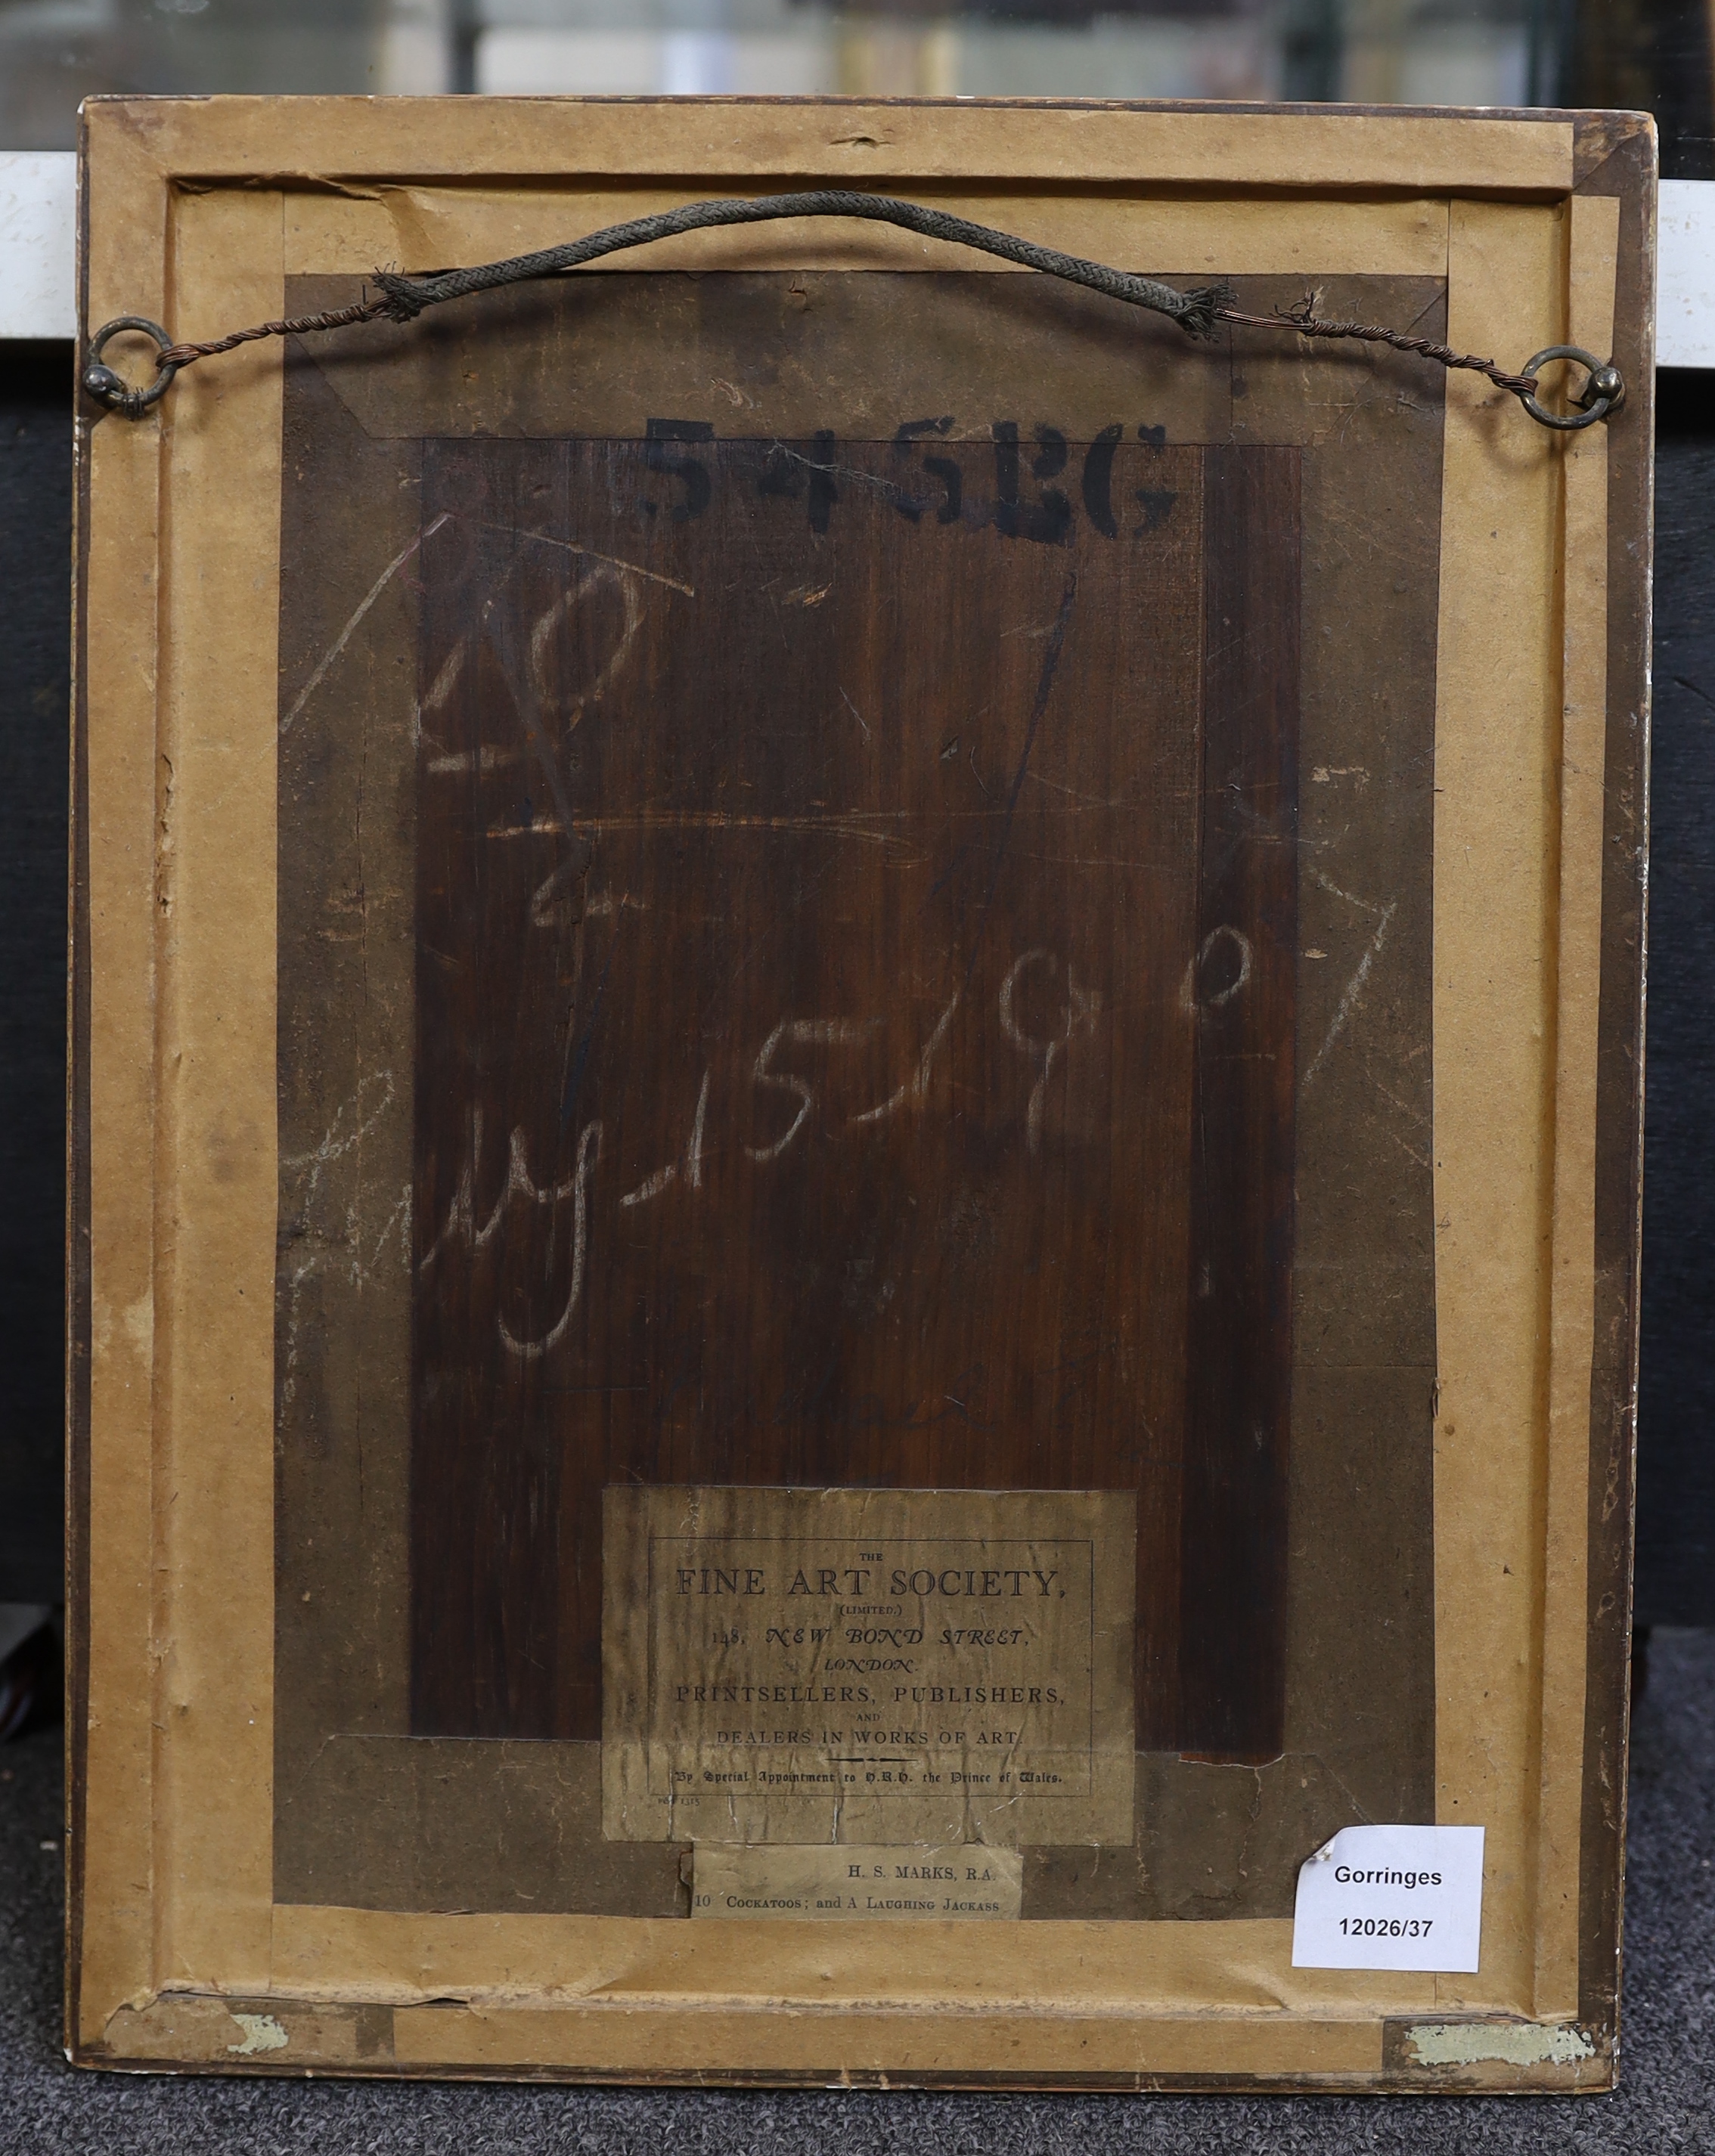 545BG
10
July 15 1907
THE
FINE ART SOCIETY,
(LIMITED.)
148, NEW BOND STREET,
LONDON.
PRINTSELLERS, PUBLISHERS,
AND
DEALERS IN WORKS OF ART.
By Special Appointment to H.R.H. the Prince of Wales.
H. S. MARKS, R.A.
10 COCKATOOS; and A LAUGHING JACKASS
Gorringes
12026/37